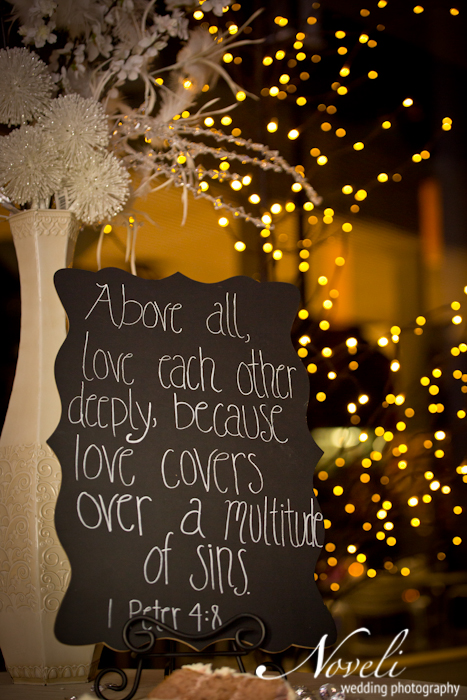 Above all,
love each other
deeply, because
love covers
over a multitude
of sins.
1 Peter 4:8
Noveli
wedding photography